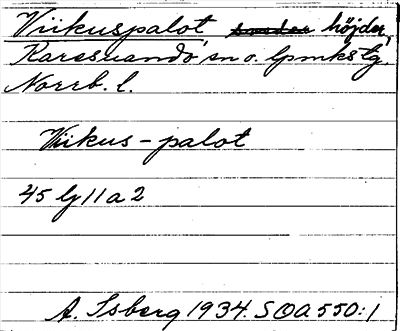 Viikuspalot höjder,
Karesuando sn o. lpmkstg.
Norrb. l.
Viikus-palot
45 lj 11 a 2
A. Isberg 1934. SOA 550:1